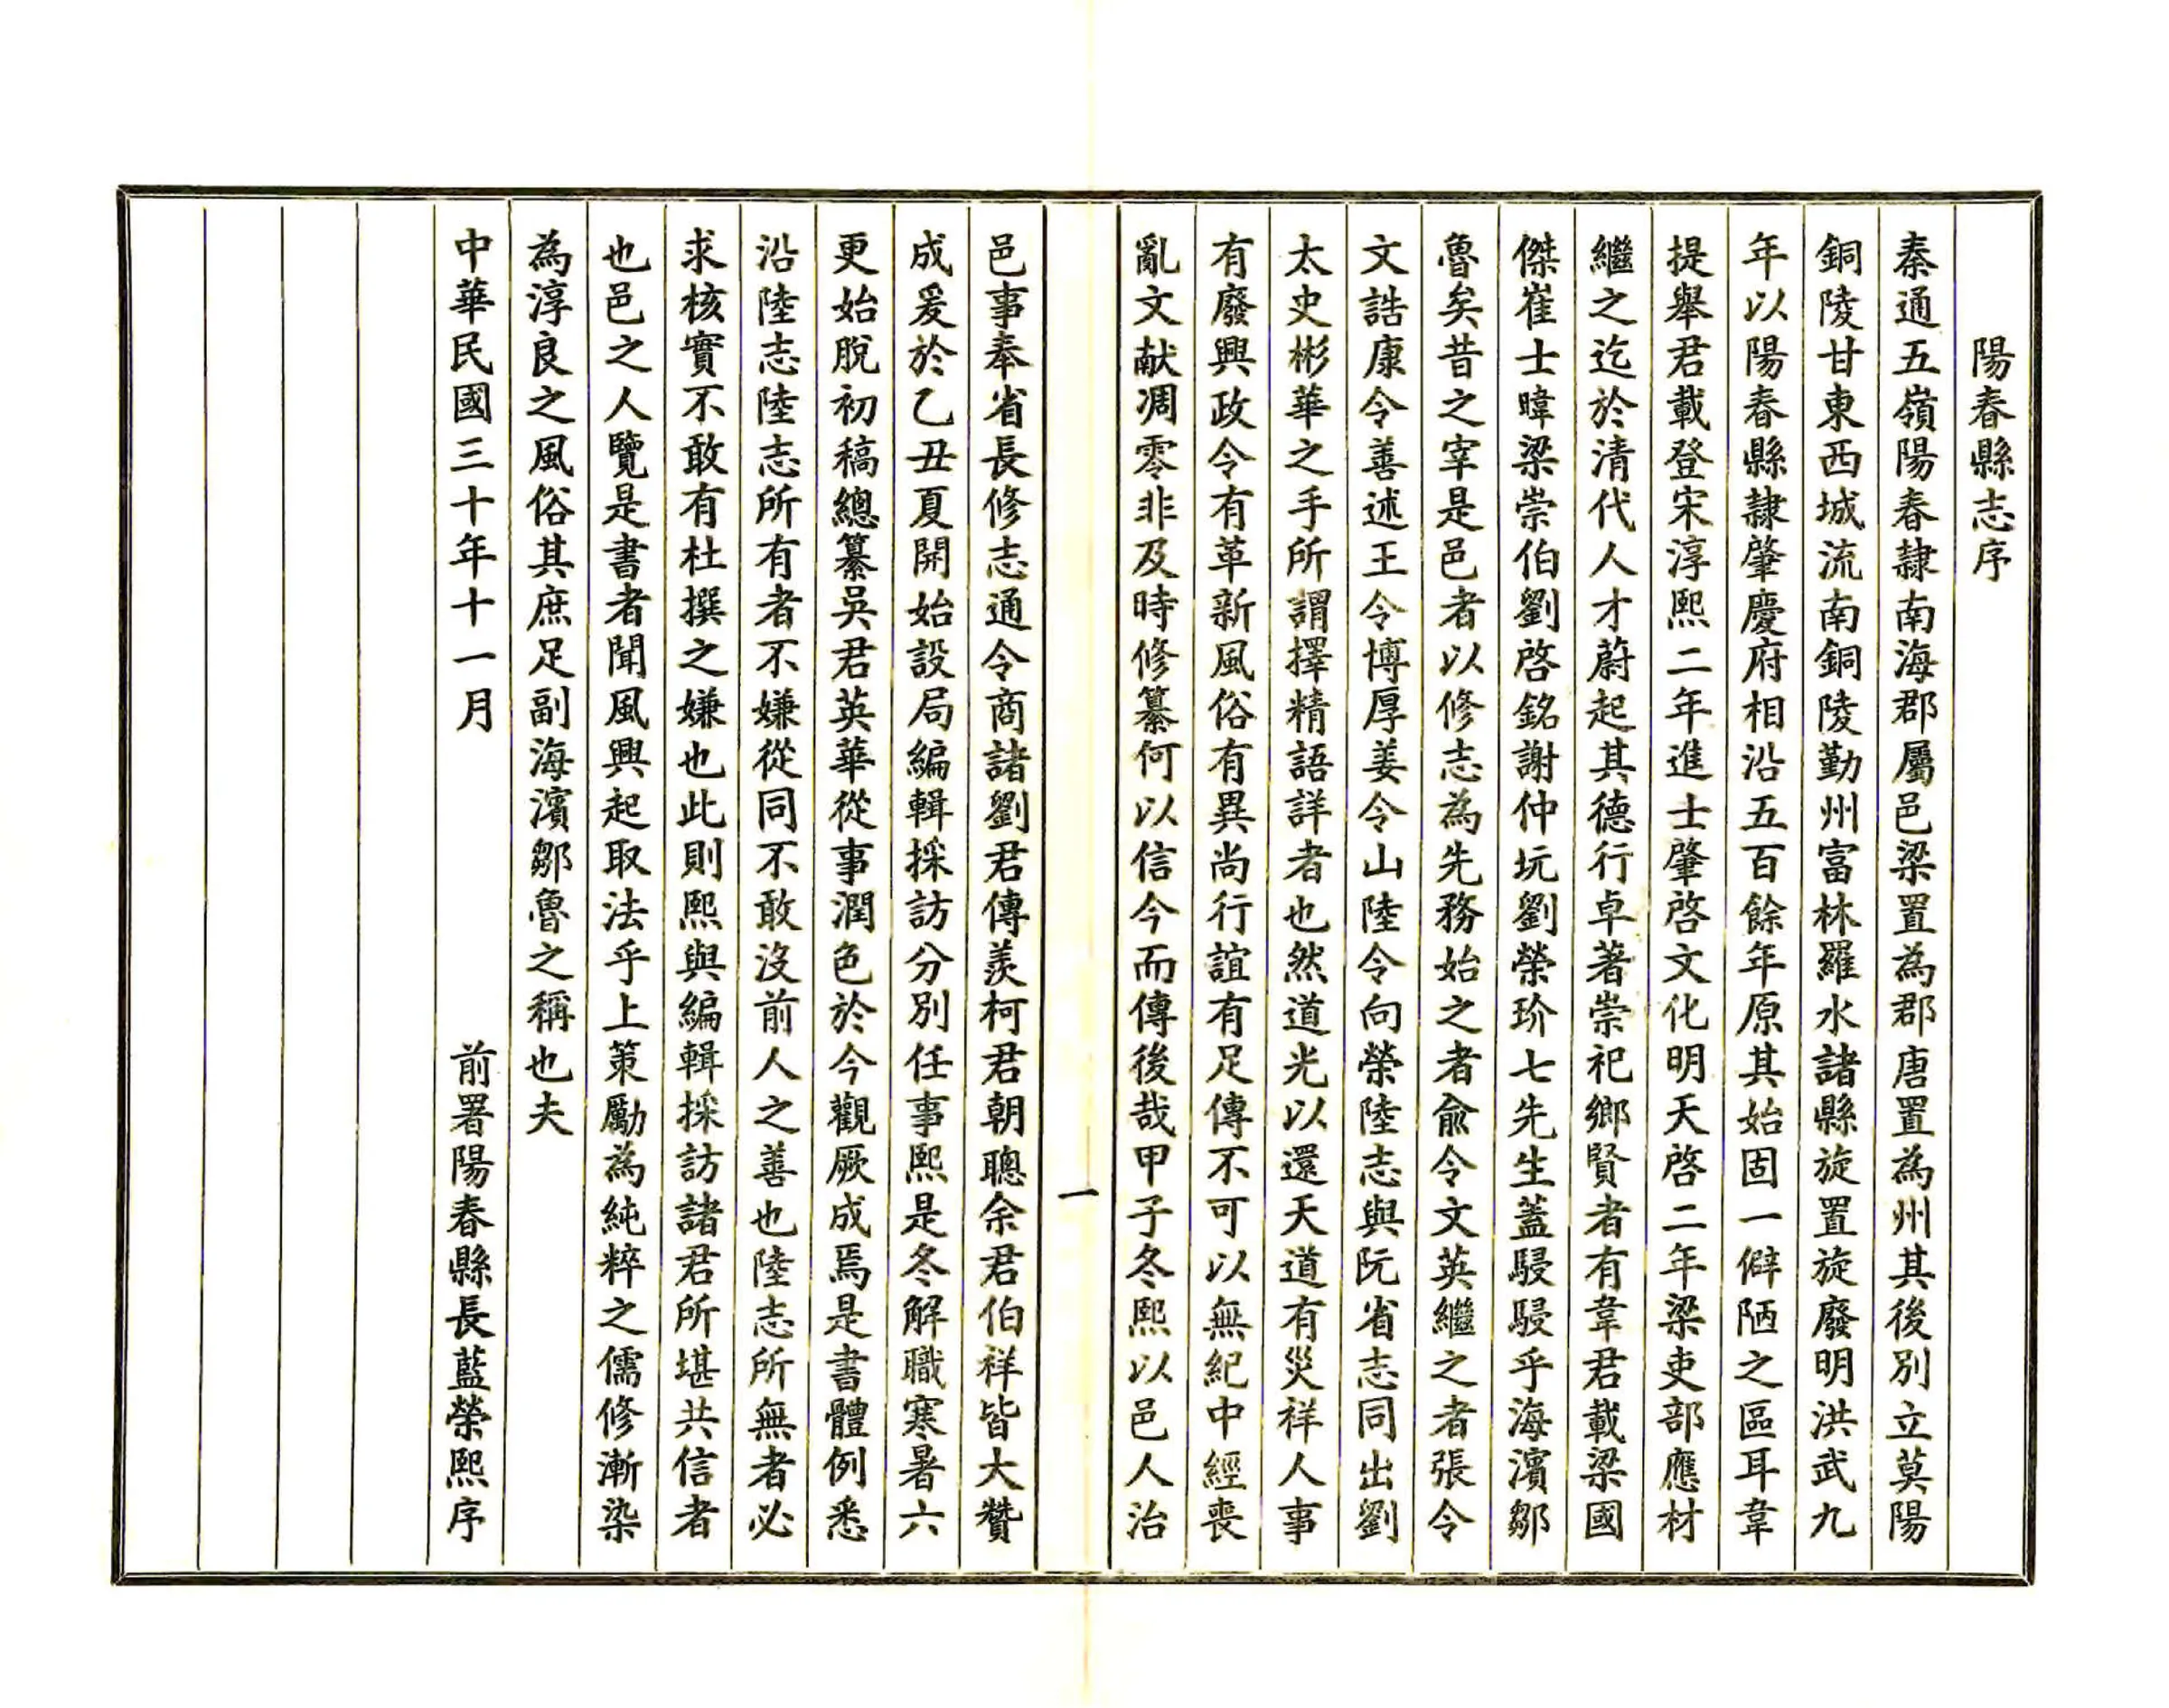 陽春縣志序
秦通五嶺陽春隷南海郡屬邑梁置為郡唐置為州其後別立莫陽
銅陵甘東西城流南銅陵勤州富林羅水諸縣旋置旋廢明洪武九
年以陽春縣隷肇慶府相沿五百餘年原其始固一僻陋之區耳韋
提舉君載登宋淳熙二年進士肇啓文化明天啓二年梁吏部應材
繼之迄於清代人才蔚起其德行卓著崇祀鄉賢者有韋君載梁國
傑崔士暐梁崇伯劉啓銘謝仲坃劉榮玠七先生蓋駸駸乎海濱鄒
魯矣昔之宰是邑者以修志為先務始之者俞令文英繼之者張令
文誥康令善述王令博厚姜令山陸令向榮陸志與阮省志同出劉
太史彬華之手所謂擇精語詳者也然道光以還天道有災祥人事
有廢興政令有革新風俗有異尚行誼有足傳不可以無紀中經喪
亂文献凋零非及時修纂何以信今而傳後哉甲子冬熙以邑人治
一
邑事奉省長修志通令商諸劉君傳羨柯君朝聰余君伯祥皆大贊
成爰於乙丑夏開始設局編輯採訪分別任事熙是冬解職寒暑六
更始脫初稿總纂吳君英華從事潤色於今觀厥成焉是書體例悉
沿陸志陸志所有者不嫌從同不敢沒前人之善也陸志所無者必
求核實不敢有杜撰之嫌也此則熙與編輯採訪諸君所堪共信者
也邑之人覽是書者聞風興起取法乎上策勵為純粹之儒修漸染
為淳良之風俗其庶足副海濱鄒魯之稱也夫
中華民國三十年十一月　前署陽春縣長藍榮熙序